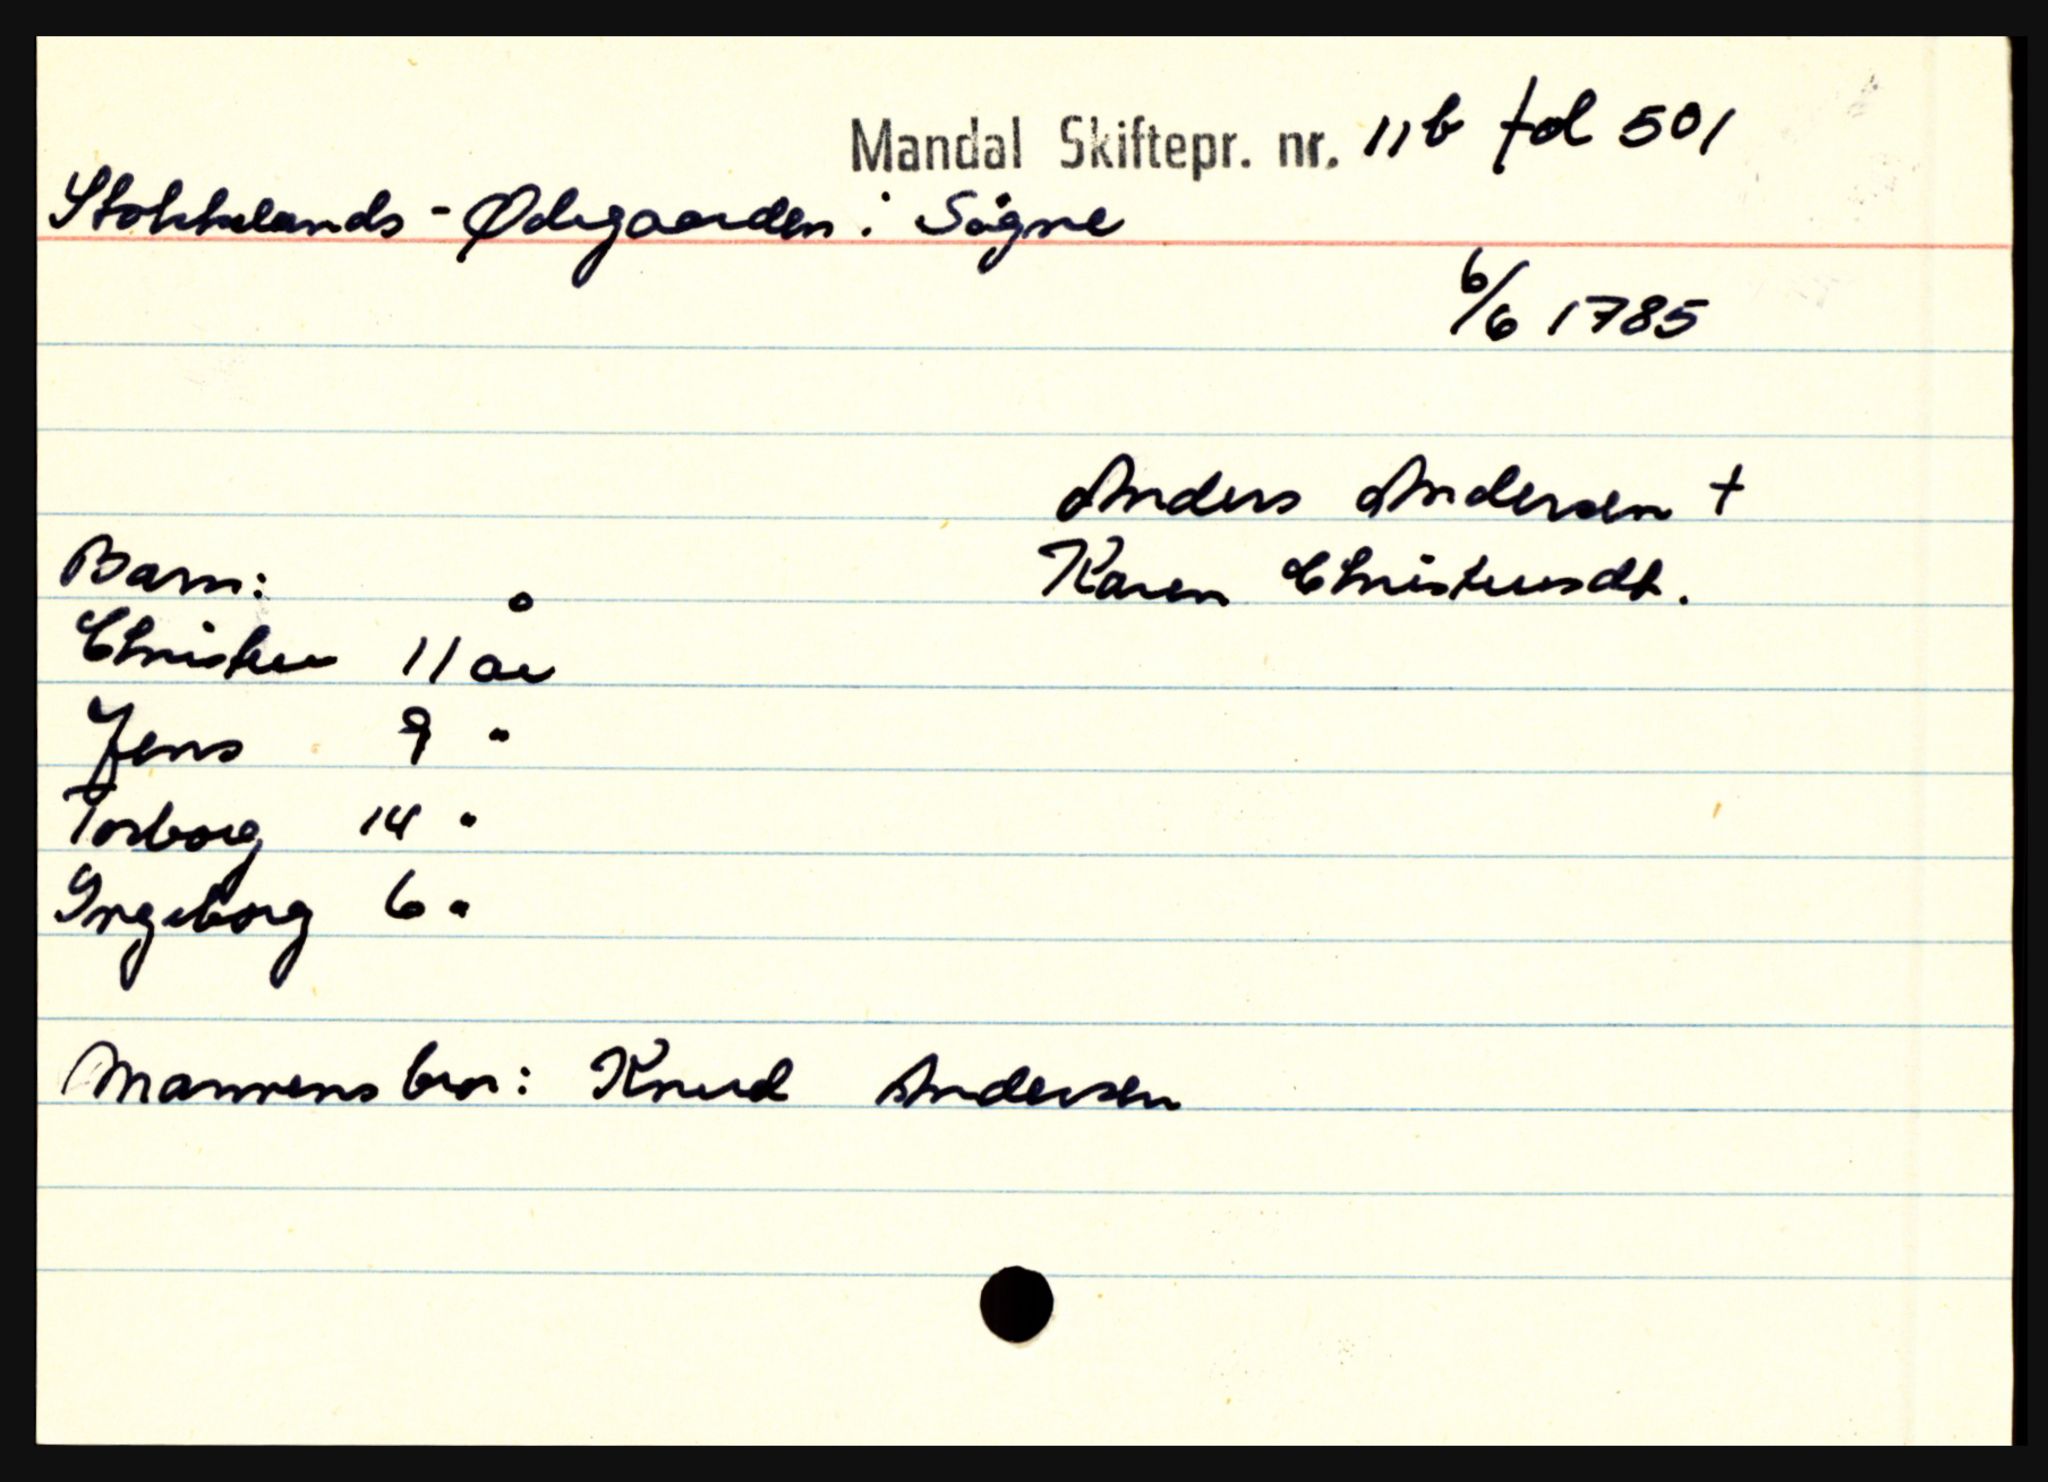 Mandal Skiftepr. nr. 11b fol 501
Stokkelands - Ødegaarden i Søgne
6/6 1785
Anders Andersen +
Karen Christensdt.
Barn:
Christen 11 år
Jens 9 "
Torborg 14 "
Ingeborg 6 "
Mannens bror: Knud Andersen